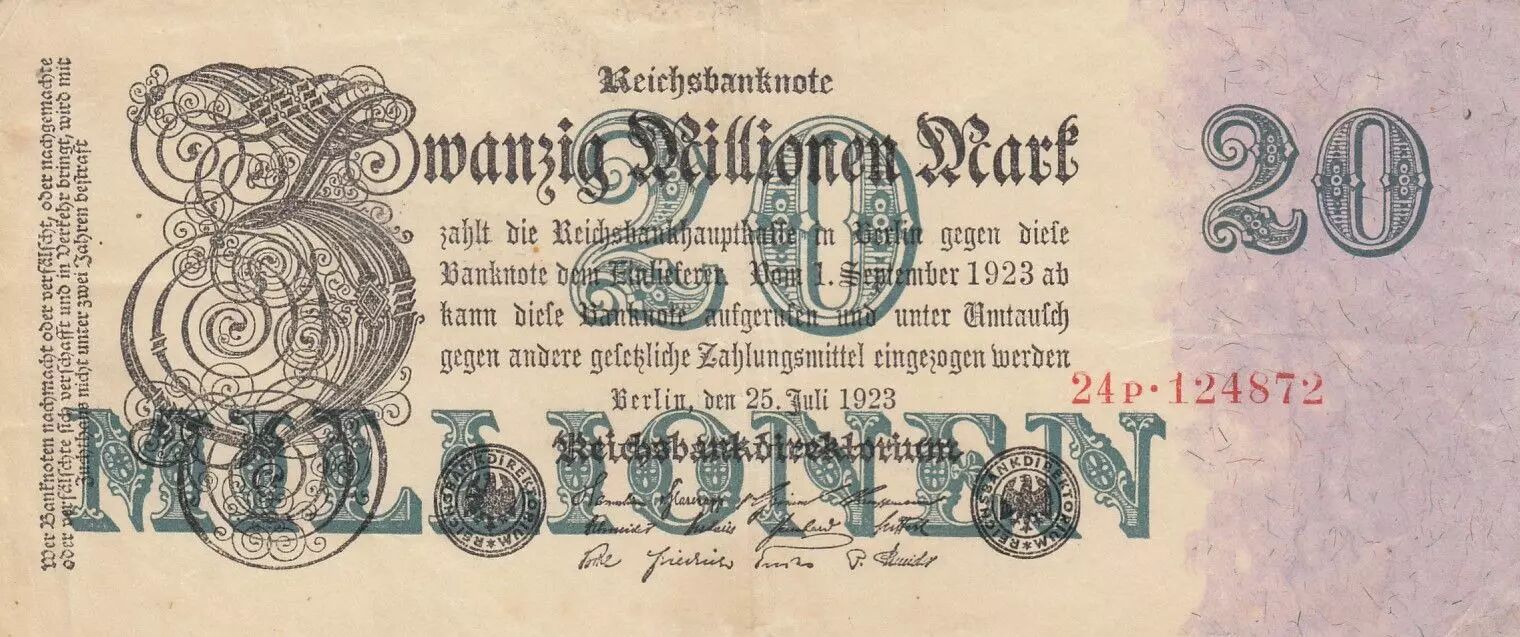 Wer Banknoten nachmacht oder verfälscht, oder nachgemachte
oder verfälschte sich verschafft und in Verkehr bringt, wird mit
Zuchthaus nicht unter zwei Jahren bestraft
Reichsbanknote
Zwanzig Millionen Mark
20
20
zahlt die Reichsbankhauptkasse in Berlin gegen diese
Banknote dem Einlieferer. Vom 1. September 1923 ab
kann diese Banknote aufgerufen und unter Umtausch
gegen andere gesetzliche Zahlungsmittel eingezogen werden
Berlin, den 25. Juli 1923
24P·124872
MILLIONEN
Reichsbankdirektorium
REICHSBANKDIREKTORIUM
REICHSBANKDIREKTORIUM
Friedrich
P. Schneider